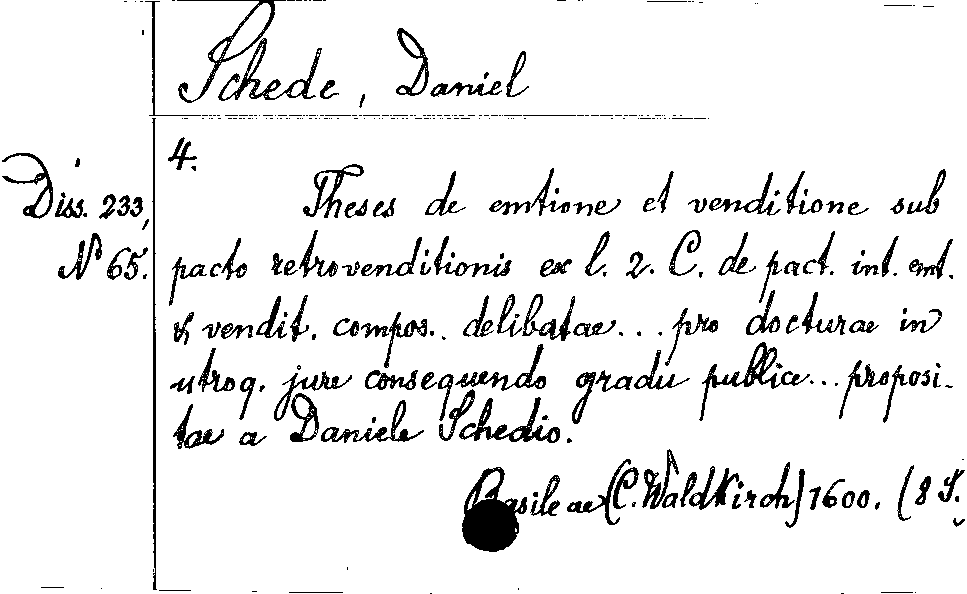 Schede, Daniel
4.
Diss. 233,
No 65.
Theses de emtione et venditione sub
pacto retrovenditionis ex l. 2. C. de pact. int. emt.
& vendit. compos.. delibatae... pro docturae in
utroq. jure consequendo gradu publice... proposi-
tae a Daniele Schedio.
Basileae (C. Waldkirch) 1600. (8 S.